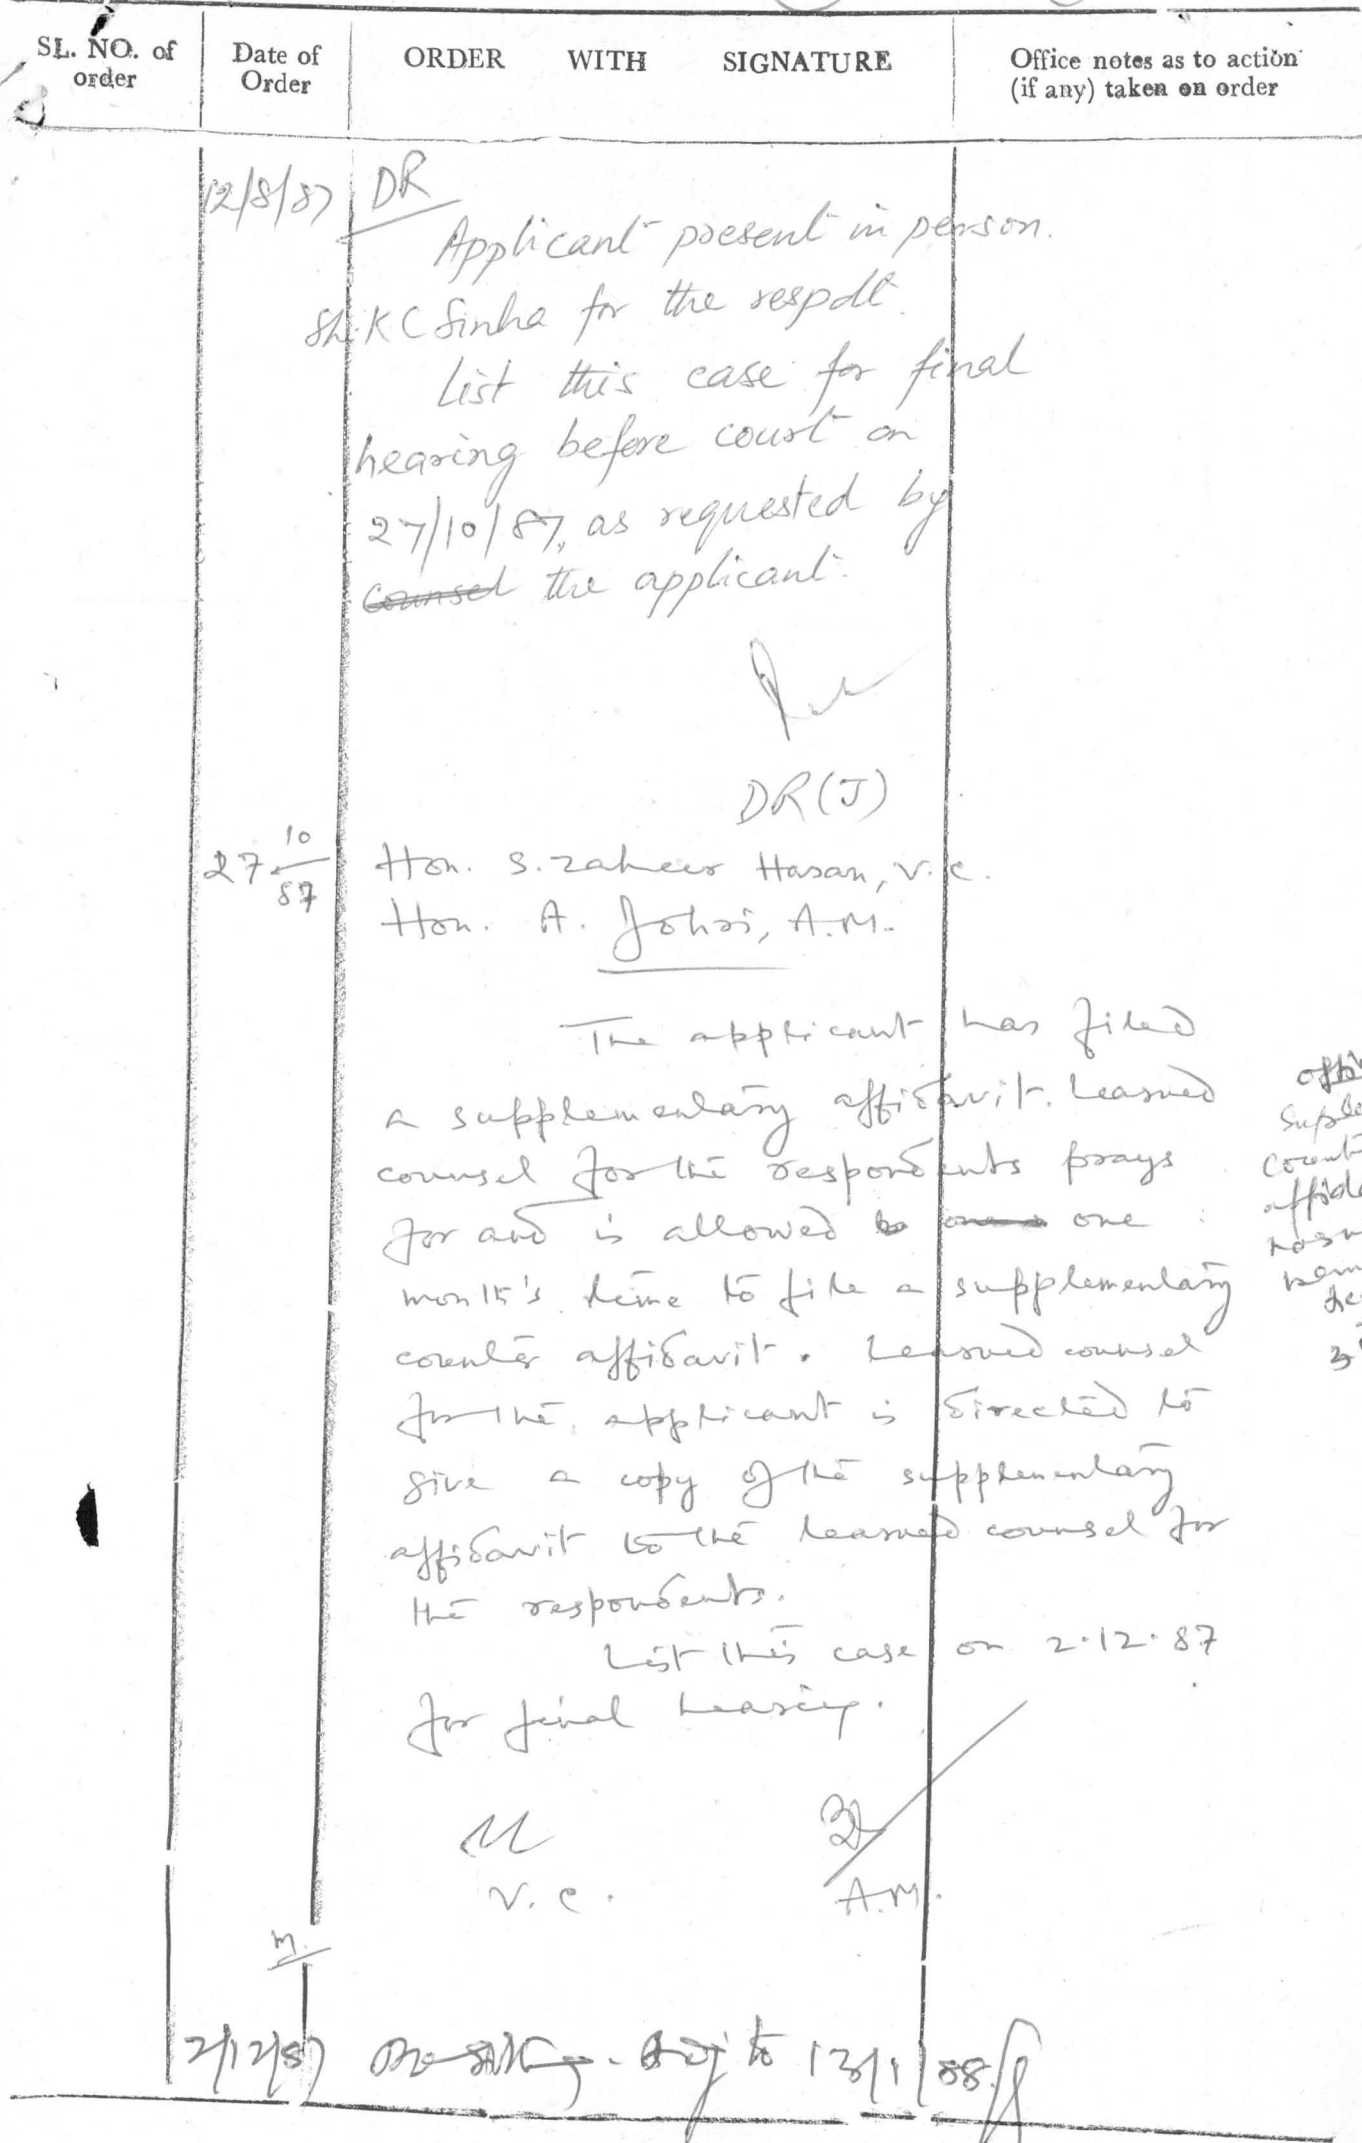 SL. NO. of order
Date of Order
ORDER WITH SIGNATURE
Office notes as to action (if any) taken on order
12/8/87 DR
Applicant present in person.
Sh. K C Sinha for the respdt.
List this case for final
hearing before court on
27/10/87, as requested by
counsel the applicant.
DR(J)
27 10/87 Hon. S. Zaheer Hasan, V.C.
Hon. A. Johri, A.M.
The applicant has filed
a supplementary affidavit. Learned
counsel for the respondents prays
for and is allowed one
month's time to file a supplementary
counter affidavit. Learned counsel
for the applicant is directed to
give a copy of the supplementary
affidavit to the learned counsel for
the respondents.
List this case on 2.12.87
for final hearing.
V.C. A.M.
m.
2/12/87 No sitting. Adj to 13/1/88.